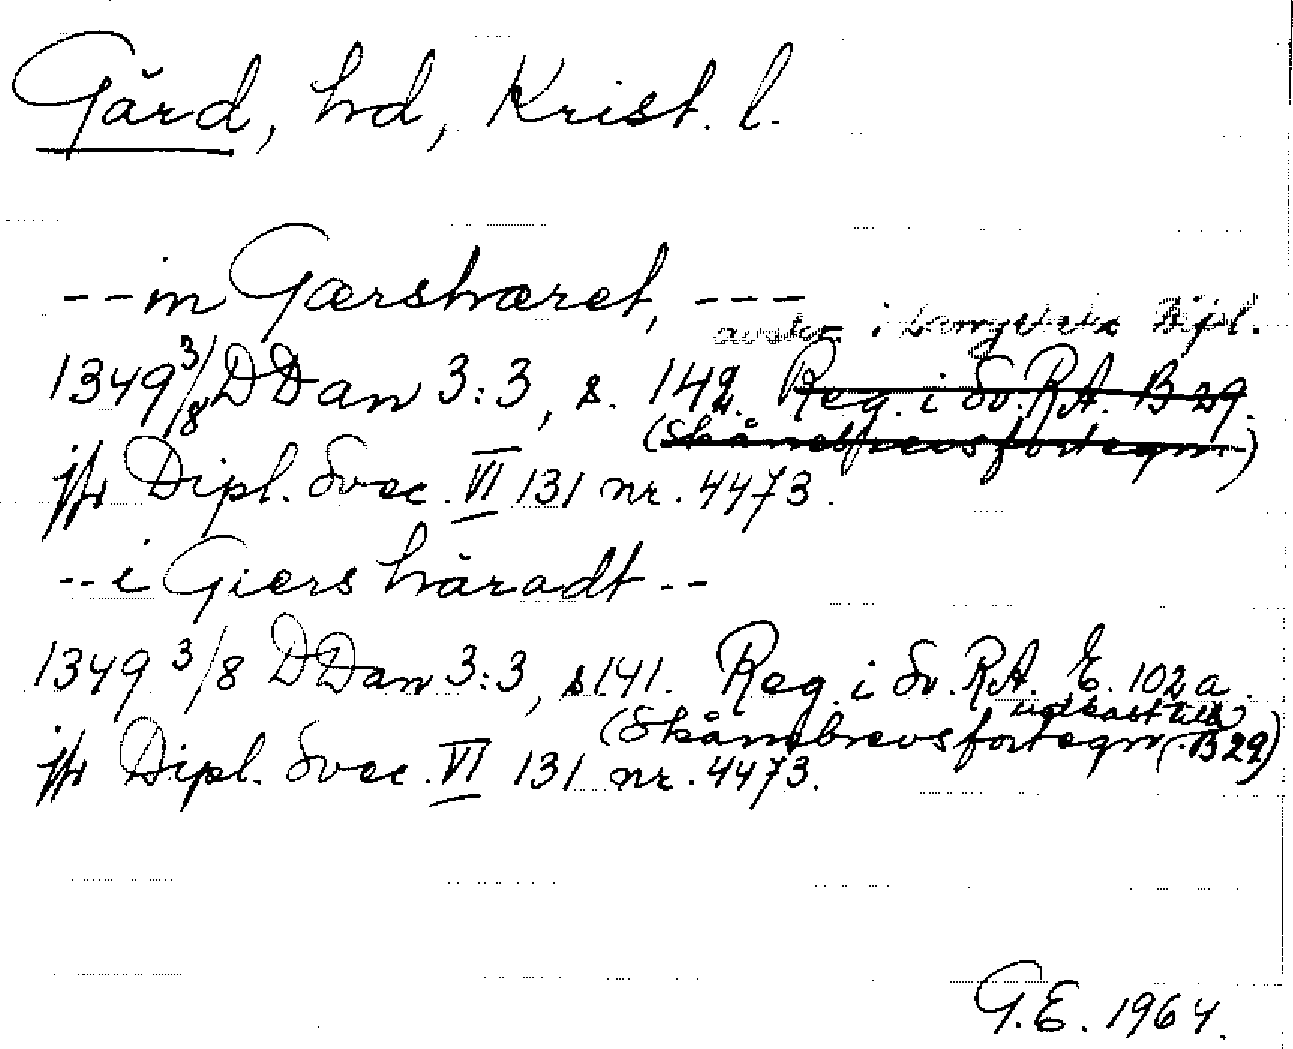 Gärd, hd, Krist. l.
--in Gærshæret, ---
avskr. i Langebeks Dipl.
1349 3/8 DDan 3:3, s. 142. Reg. i Sv. RA. B 29.
(Skånebrevsfortegn.)
jfr Dipl. Svec. VI 131 nr. 4473.
--i Giers häradt--
1349 3/8 DDan 3:3, s 141. Reg. i Sv. RA. E. 102a.
udkast till
(Skånebrevsfortegn. (B29)
jfr Dipl. Svec. VI 131 nr. 4473.
G.E. 1964.